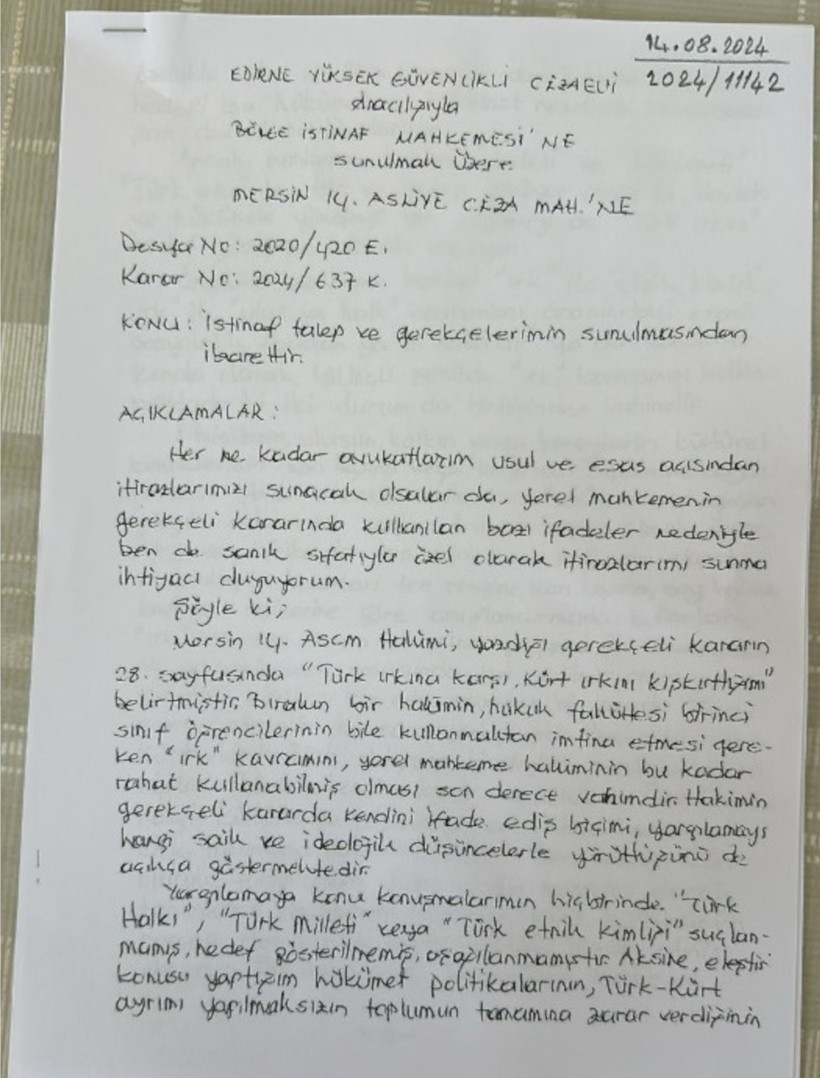 14.08.2024
2024/11142
EDİRNE YÜKSEK GÜVENLİKLİ CEZAEVİ
Aracılığıyla
BÖLGE İSTİNAF MAHKEMESİ'NE
sunulmak üzere
MERSİN 14. ASLİYE CEZA MAH.'NE
Dosya No: 2020/420 E.
Karar No: 2024/637 K.
KONU: İstinaf talep ve gerekçelerimin sunulmasından
ibarettir.
AÇIKLAMALAR:
Her ne kadar avukatlarım usul ve esas açısından
itirazlarımızı sunacak olsalar da, yerel mahkemenin
gerekçeli kararında kullanılan bazı ifadeler nedeniyle
ben de sanık sıfatıyla özel olarak itirazlarımı sunma
ihtiyacı duyuyorum.
Şöyle ki;
Mersin 14. Ascm Hakimi, yazdığı gerekçeli kararın
28. sayfasında "Türk ırkına karşı, Kürt ırkını kışkırttığımı"
belirtmiştir. Bırakın bir hakimin, hukuk fakültesi birinci
sınıf öğrencilerinin bile kullanmaktan imtina etmesi gere-
ken "ırk" kavramını, yerel mahkeme hakiminin bu kadar
rahat kullanabilmiş olması son derece vahimdir. Hakimin
gerekçeli kararda kendini ifade ediş biçimi, yargılamayı
hangi saik ve ideolojik düşüncelerle yürüttüğünü de
açıkça göstermektedir.
Yargılamaya konu konuşmalarımın hiçbirinde "Türk
Halkı", "Türk Milleti" veya "Türk etnik kimliği" suçlan-
mamış, hedef gösterilmemiş, aşağılanmamıştır. Aksine, eleştiri
konusu yaptığım hükümet politikalarının, Türk-Kürt
ayrımı yapılmaksızın toplumun tamamına zarar verdiğinin